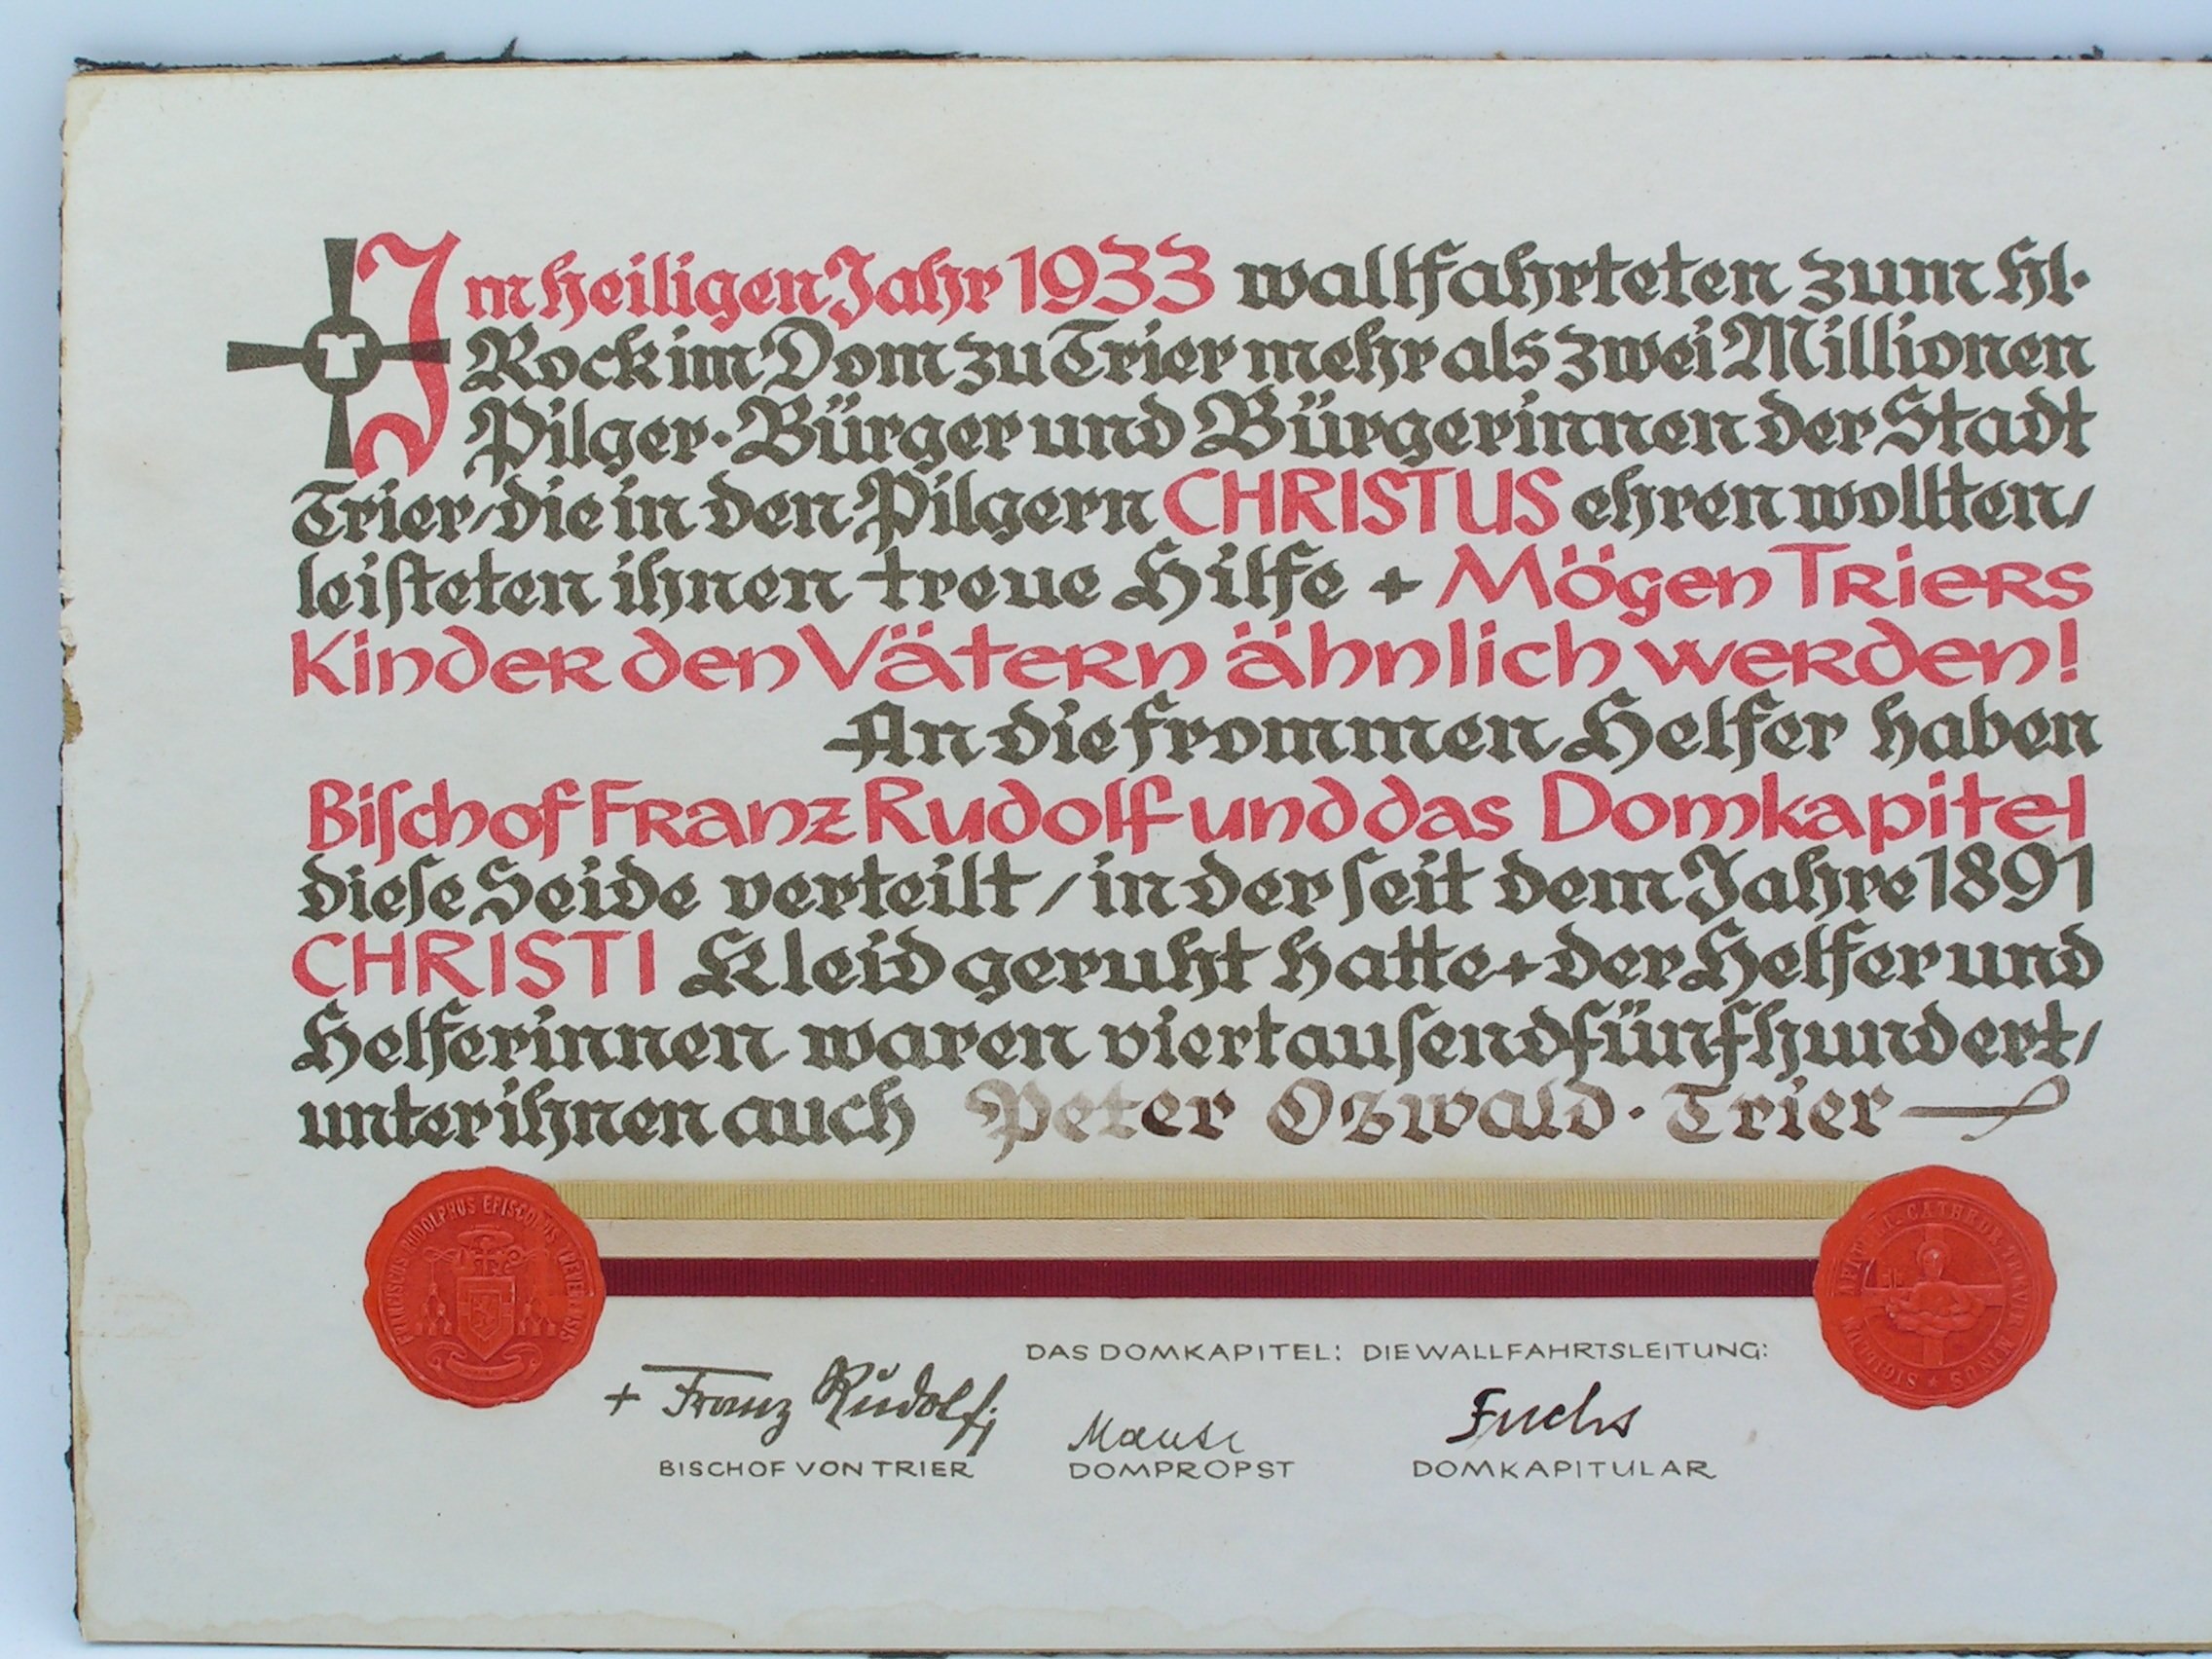 Im heiligen Jahr 1933 wallfahrteten zum hl.
Rock im Dom zu Trier mehr als zwei Millionen
Pilger · Bürger und Bürgerinnen der Stadt
Trier / die in den Pilgern CHRISTUS ehren wollten /
leiſteten ihnen treue Hilfe + Mögen Triers
Kinder den Vätern ähnlich werden!
An die frommen Helfer haben
Biſchof Franz Rudolf und das Domkapitel
dieſe Seide verteilt / in der ſeit dem Jahre 1891
CHRISTI Kleid geruht hatte + der Helfer und
Helferinnen waren viertauſendfünfhundert /
unter ihnen auch Peter Oswald · Trier
FRANCISCUS RUDOLPHUS EPISCOPUS TREVERENSIS
DAS DOMKAPITEL: DIE WALLFAHRTSLEITUNG:
+ Franz Rudolf
Fuchs
BISCHOF VON TRIER DOMPROPST DOMKAPITULAR